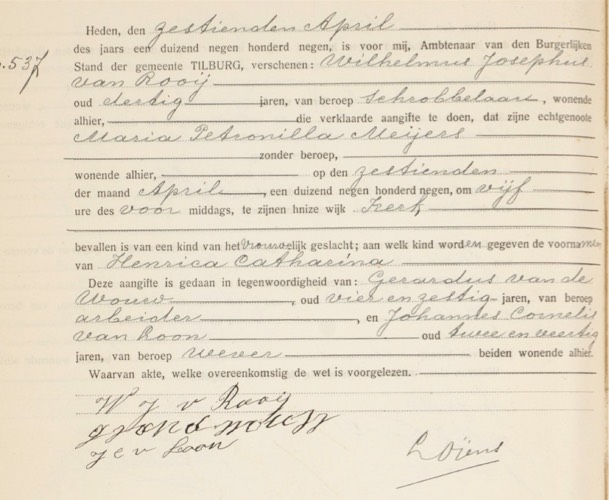 Heden, den zestienden April
des jaars een duizend negen honderd negen, is voor mij, Ambtenaar van den Burgerlijken
537
Stand der gemeente TILBURG, verschenen: Wilhelmus Josephus
van Rooij
oud dertig jaren, van beroep Schrobbelaar, wonende
alhier, die verklaarde aangifte te doen, dat zijne echtgenoote
Maria Petronilla Meijers
zonder beroep,
wonende alhier, op den zestienden
der maand April, een duizend negen honderd negen, om vijf
ure des voor middags, te zijnen hnize wijk Kerk
bevallen is van een kind van het Vrouwelijk geslacht; aan welk kind worden gegeven de voornamen
van Henrica Catharina
Deze aangifte is gedaan in tegenwoordigheid van: Gerardus van de
Wouw, oud vier en zestig jaren, van beroep
arbeider, en Johannes Cornelis
van Loon oud twee en veertig
jaren, van beroep wever beiden wonende alhier.
Waarvan akte, welke overeenkomstig de wet is voorgelezen.
W J v Rooij
J C v Loon